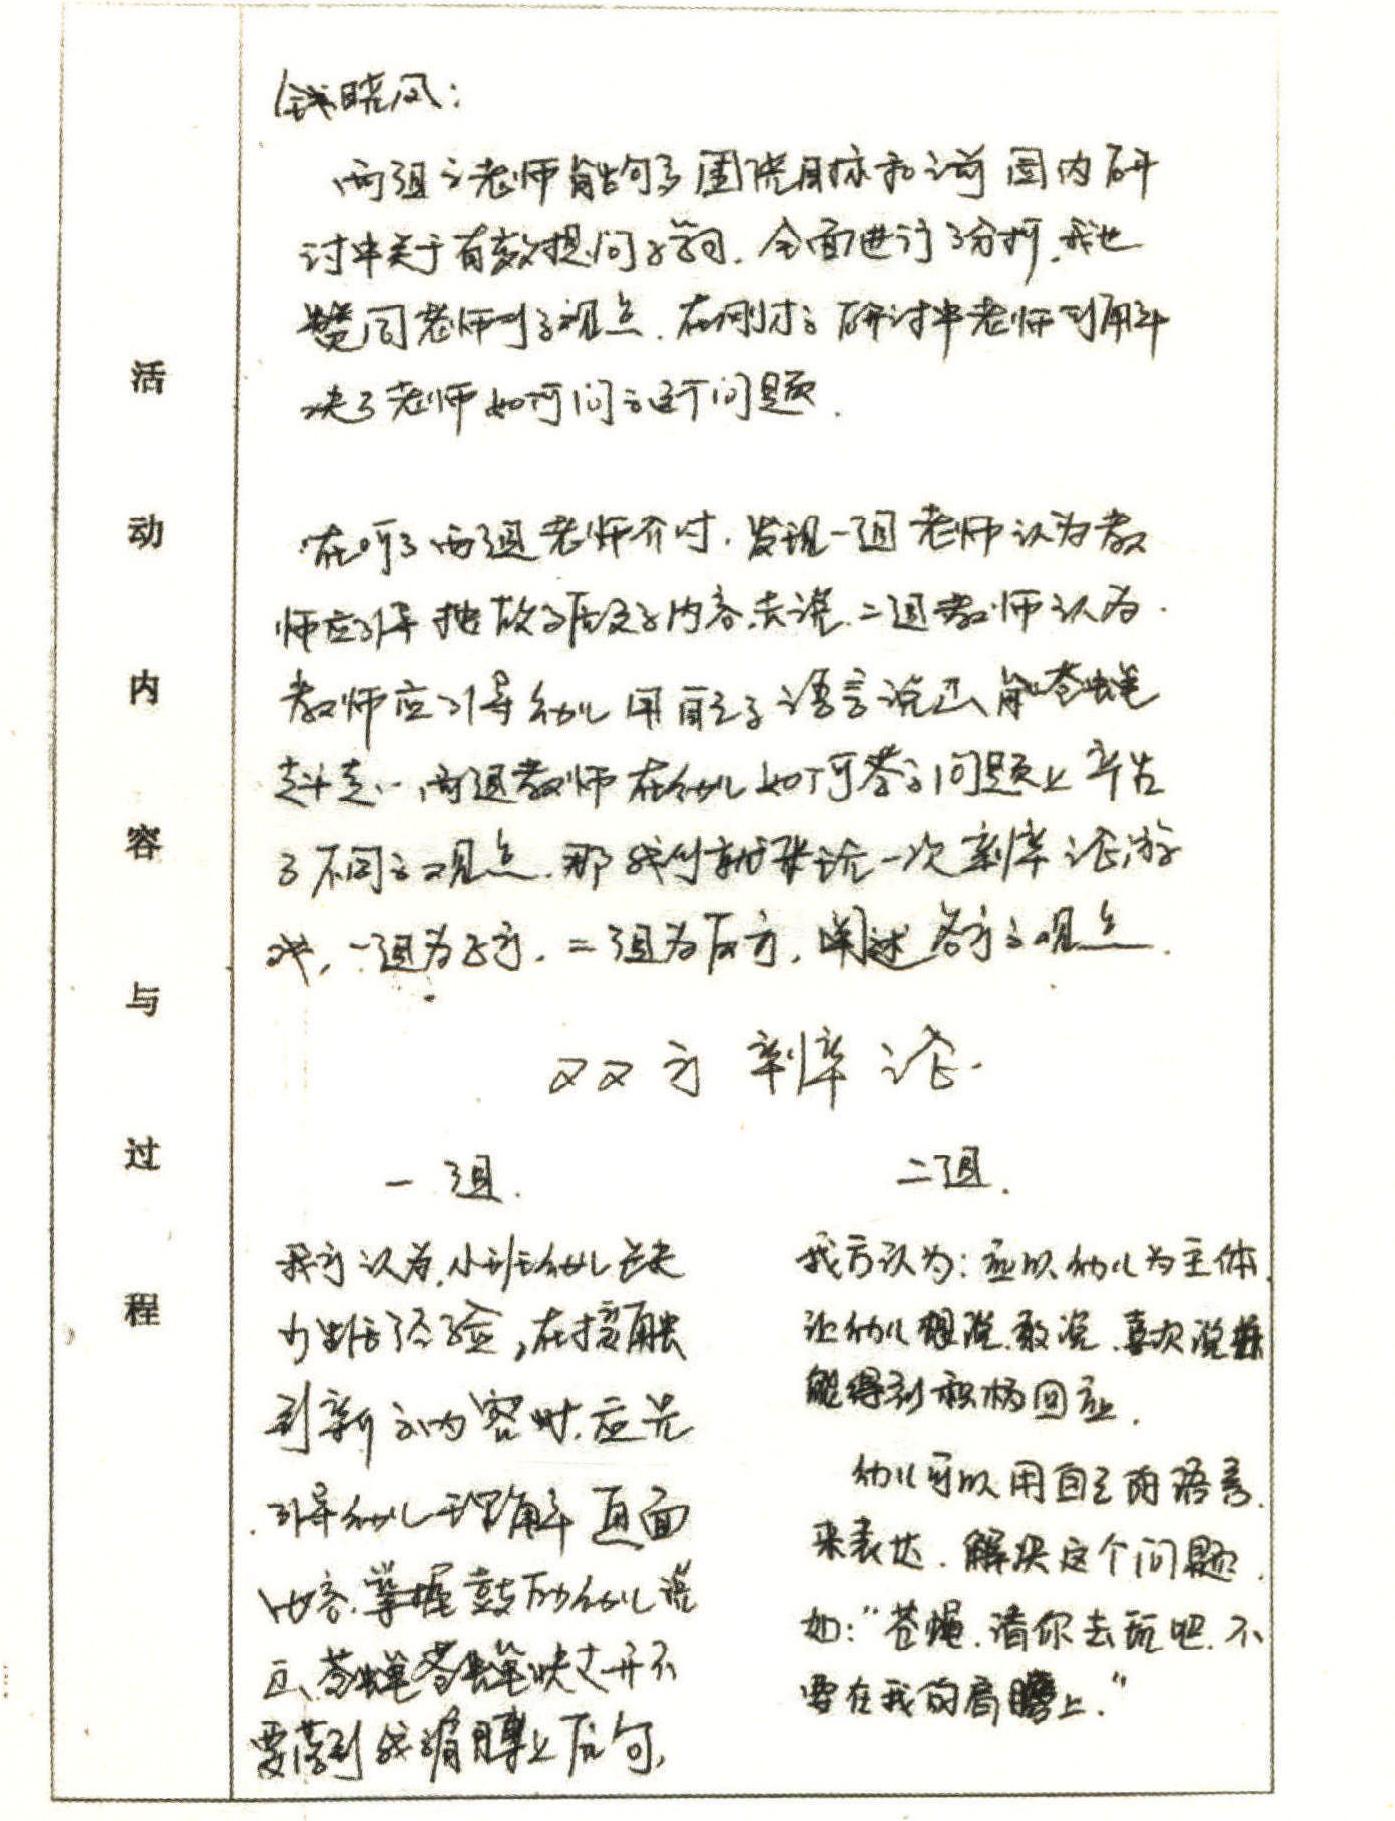 活动内容与过程
钱晓凤:
两组的老师能够围绕目标和之前园内研
讨中关于有效提问的学习,全面进行了分析,我也
赞同老师们的观点,在刚才的研讨中老师们解
决了老师如何问的这个问题.
在听了两组老师介绍,发现一组老师认为教
师应引导按故事原文的内容去说,二组教师认为
教师应引导幼儿用自己的语言说出,能让苍蝇
赶走,两组教师在幼儿如何答的问题上产生
了不同的观点,那我们就来玩一次辩论游
戏,一组为正方,二组为反方,阐述各方的观点.
双方辩论
一组.
我方认为,小班幼儿缺
少生活经验,在接触
到新的内容时,应先
引导幼儿理解画面
内容,掌握鼓励幼儿说
出,苍蝇苍蝇快走开不
要落到我的肩膀上原句,
二组.
我方认为:应以幼儿为主体,
让幼儿想说,敢说,喜欢说并
能得到积极回应.
幼儿可以用自己的语言,
来表达,解决这个问题,
如:“苍蝇,请你去玩吧,不
要在我的肩膀上.”